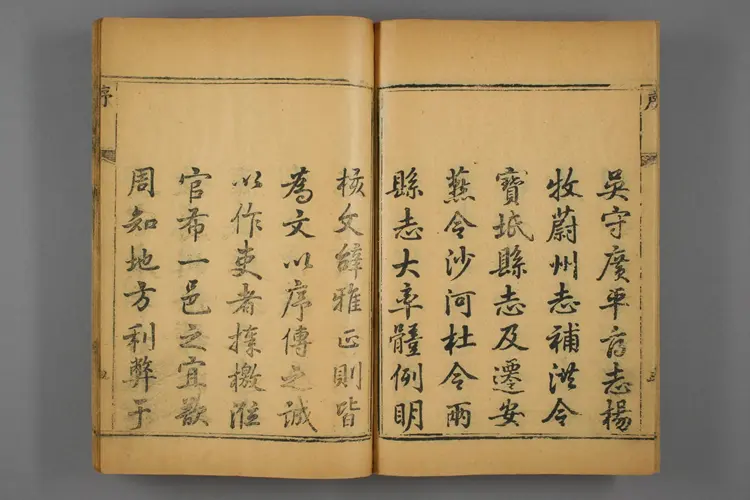 序
吳守廣平府志楊
牧蔚州志補洪令
寶坻縣志及遷安
燕令沙河杜令兩
縣志大率體例明
核文辭雅正則皆
為文以序傳之誠
以作吏者操檄
官希一邑之宜
周知地方利弊于
序